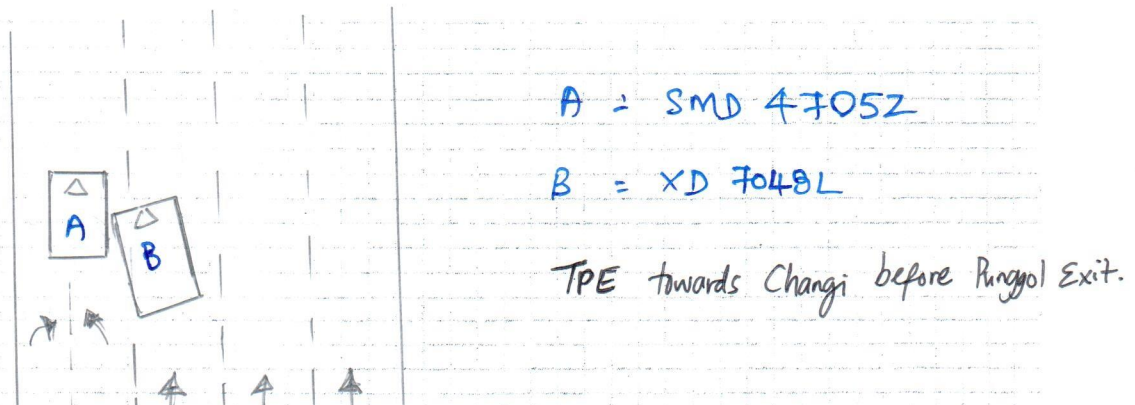 A
B
A = SMD 4705Z
B = XD 7048L
TPE towards Changi before Punggol Exit.